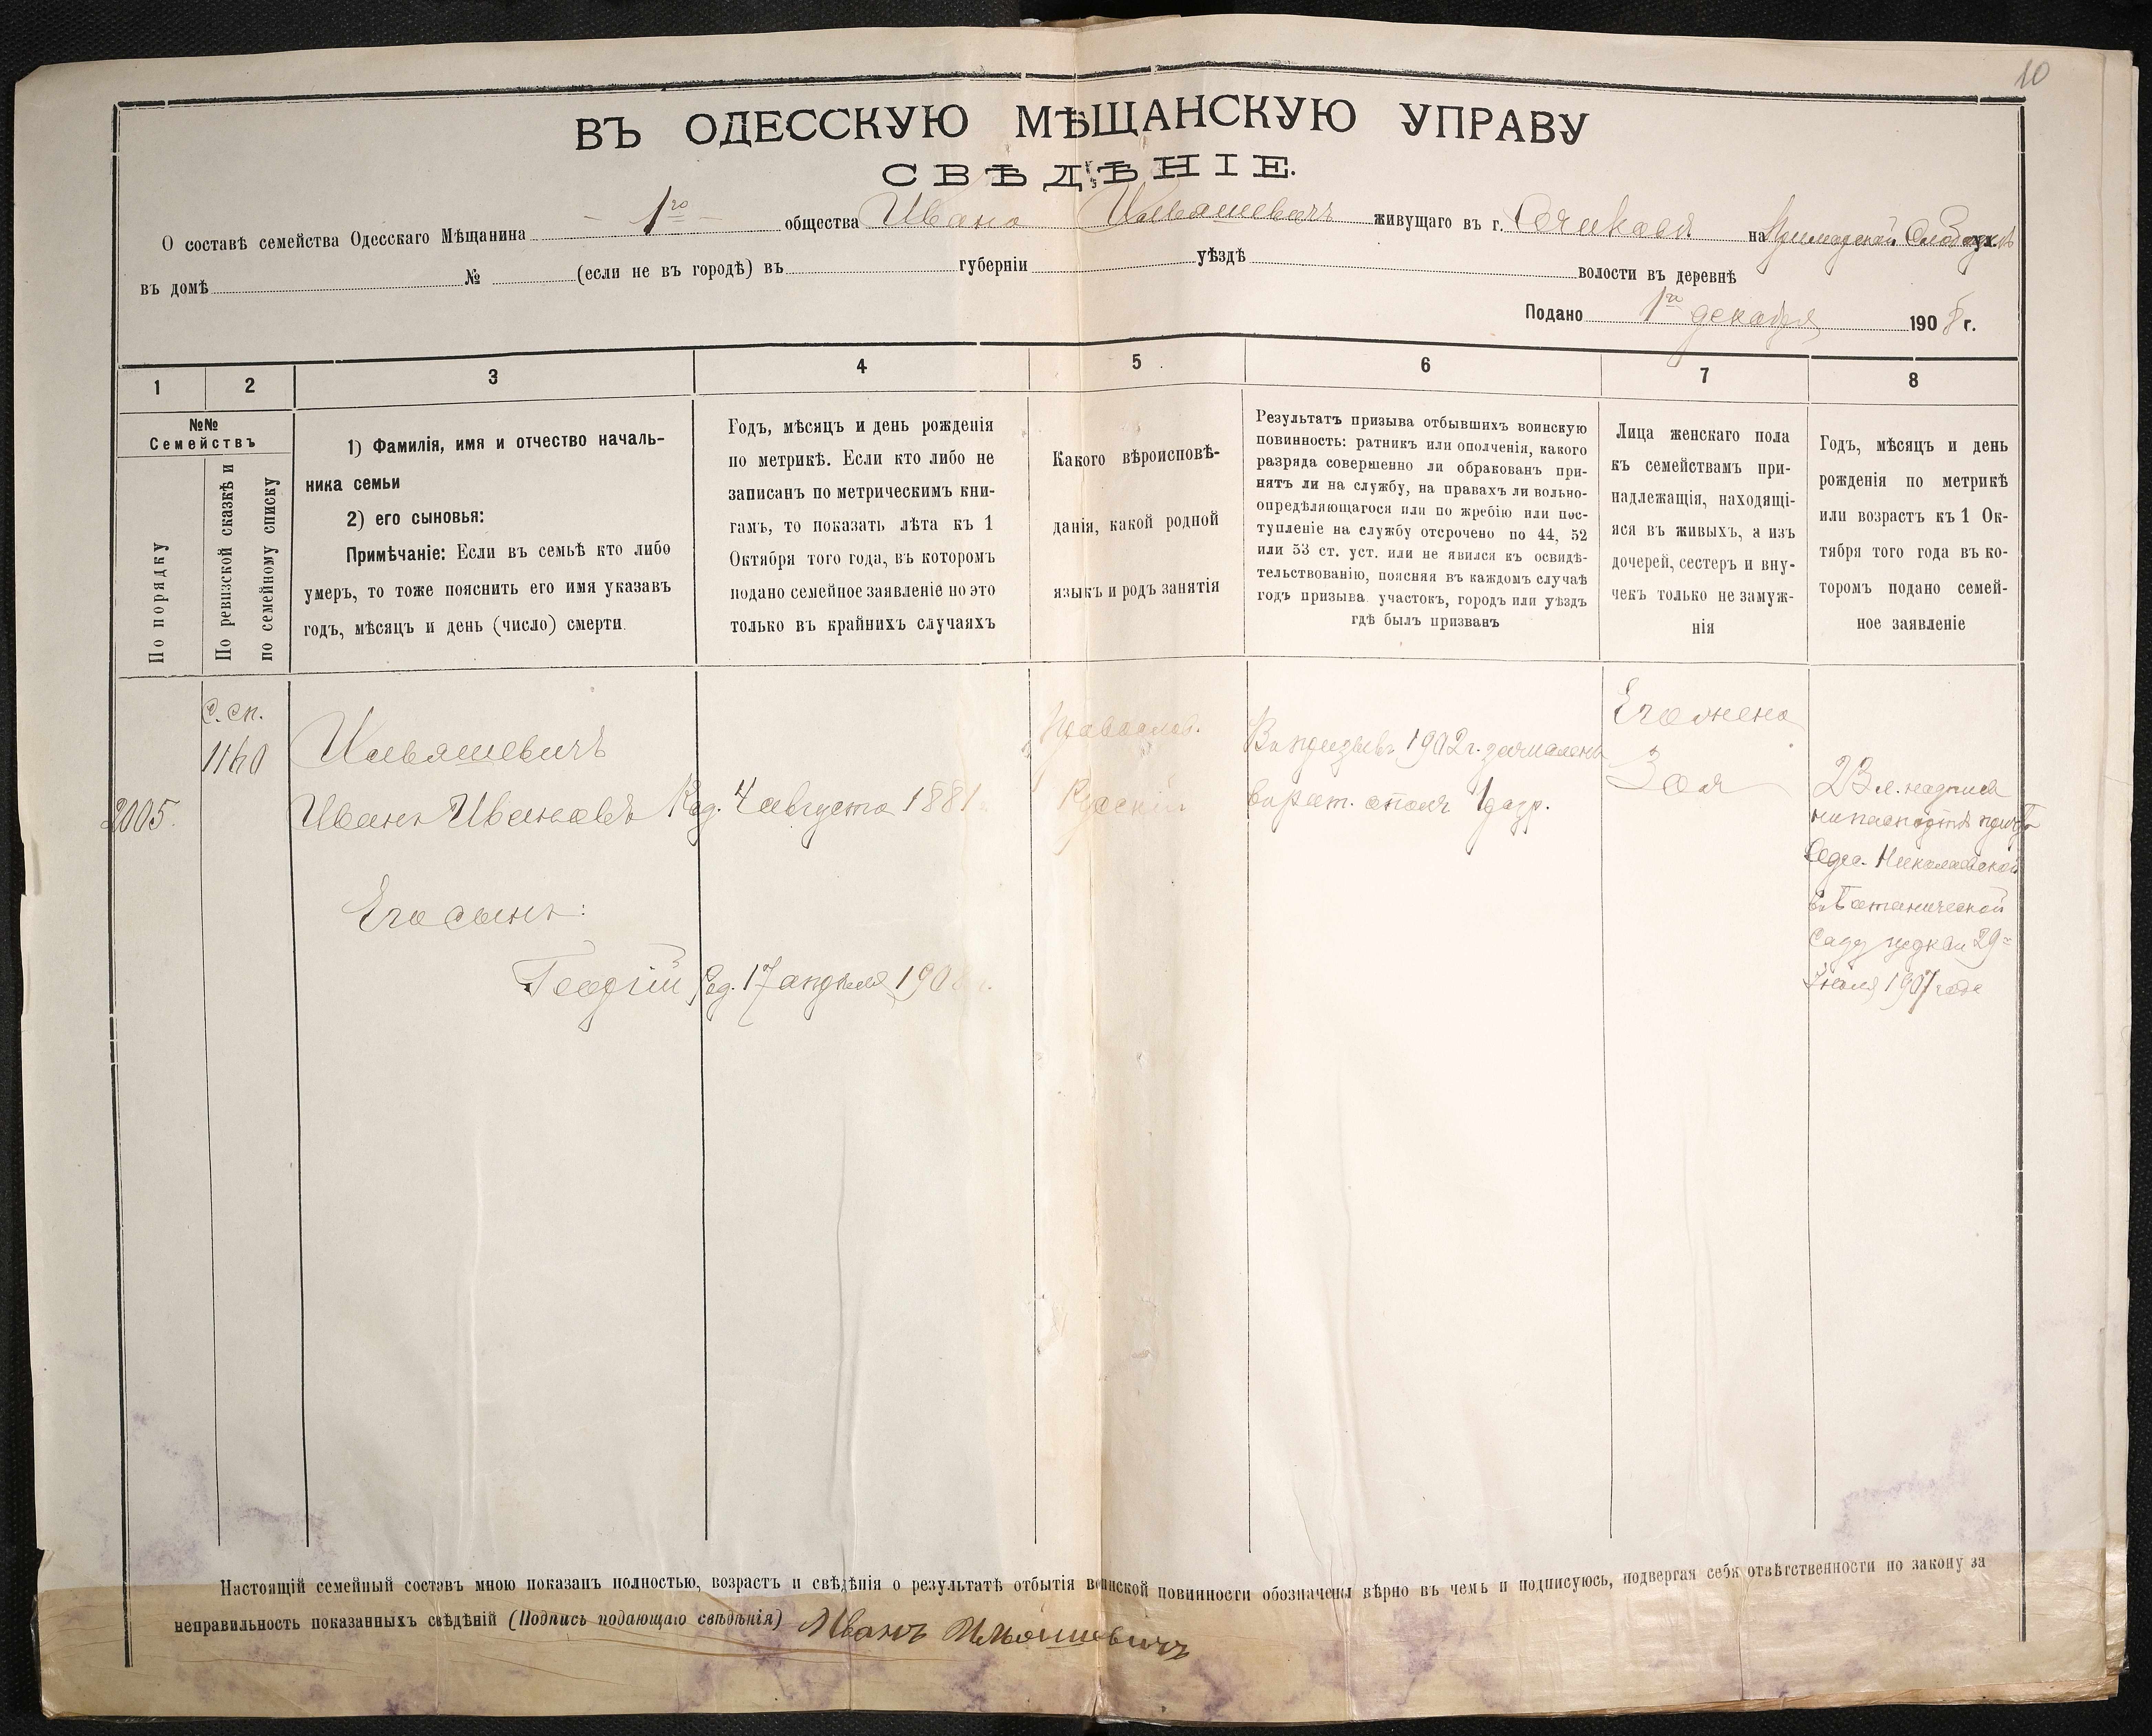 10
ВЪ ОДЕССКУЮ МѢЩАНСКУЮ УПРАВУ
СВѢДѢНІЕ.
О составѣ семейства Одесскаго Мѣщанина 1го общества Ивана Ильяшевичъ живущаго въ г. Очаковѣ на Приморской Слободкѣ ул.
въ домѣ № (если не въ городѣ) въ губерніи уѣздѣ волости въ деревнѣ
Подано 1го декабря 1908 г.
1 2 3 4 5 6 7 8
№№
Семействъ
По порядку
По ревизской сказкѣ и
по семейному списку
1) Фамилія, имя и отчество началь-
ника семьи
2) его сыновья:
Примѣчаніе: Если въ семьѣ кто либо
умеръ, то тоже пояснить его имя указавъ
годъ, мѣсяцъ и день (число) смерти.
Годъ, мѣсяцъ и день рожденія
по метрикѣ. Если кто либо не
записанъ по метрическимъ кни-
гамъ, то показать лѣта къ 1
Октября того года, въ которомъ
подано семейное заявленіе но это
только въ крайнихъ случаяхъ
Какого вѣроисповѣ-
данія, какой родной
языкъ и родъ занятія
Результатъ призыва отбывшихъ воинскую
повинность: ратникъ или ополченія, какого
разряда совершенно ли обракованъ при-
нятъ ли на службу, на правахъ ли вольно-
опредѣляющагося или по жребію или пос-
тупленіе на службу отсрочено по 44, 52
или 53 ст. уст. или не явился къ освидѣ-
тельствованію, поясняя въ каждомъ случаѣ
годъ призыва участокъ, городъ или уѣздъ
гдѣ былъ призванъ
Лица женскаго пола
къ семействамъ при-
надлежащія, находящі-
яся въ живыхъ, а изъ
дочерей, сестеръ и вну-
чекъ только не замуж-
нія
Годъ, мѣсяцъ и день
рожденія по метрикѣ
или возрастъ къ 1 Ок-
тября того года въ ко-
торомъ подано семей-
ное заявленіе
2005.
С. сп.
1160
Ильяшевичъ
Иванъ Ивановъ Род. 4 августа 1881
Его сынъ:
Георгій Род. 17 апрѣля 1908 г.
Православ.
Русскій
Въ призывъ 1902 г. зачисленъ
въ рат. ополч 1 разр.
Его жена
Зоя
23 л. надпись
на паспортѣ причта
Одес. Николаевской
въ Ботаническомъ
саду церкви 29го
Іюля 1907 года
Настоящій семейный составъ мною показанъ полностью, возрастъ и свѣдѣнія о результатѣ отбытія воинской повинности обозначены вѣрно въ чемъ и подписуюсь, подвергая себя отвѣтственности по закону за
неправильность показанныхъ свѣдѣній (Подпись подающаго свѣдѣнія) Иванъ Ильяшевичъ